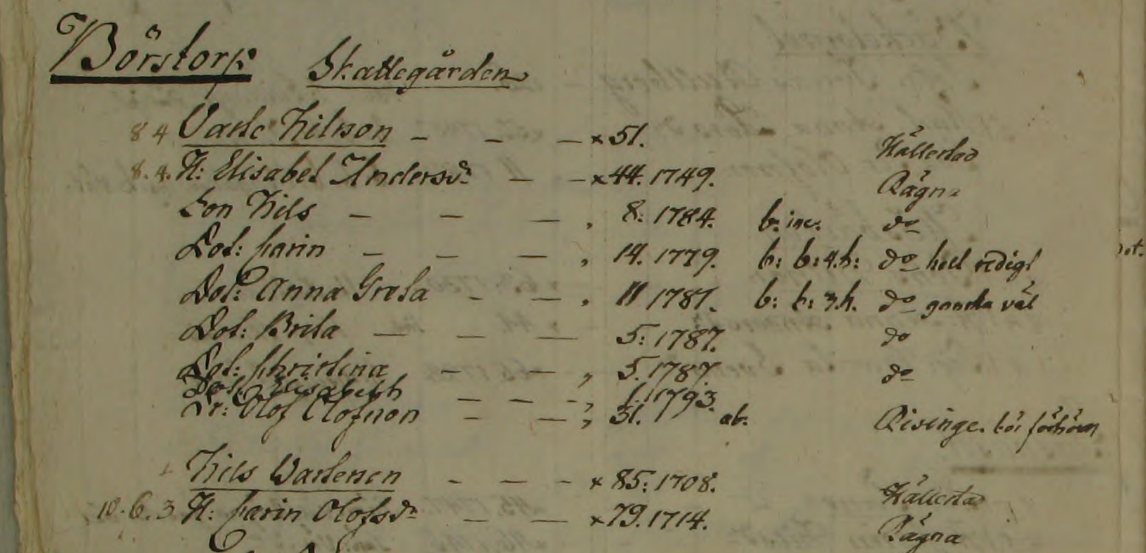 Börstorp Skattegården
8 4 Varle Nilsson - - - × 51. Hällestad
8. 4. H: Elisabet Andersdr - - × 44. 1749. Rägna
Son Nils - - - , 8: 1784. b: do
Dot: Carin - - - , 14. 1779. b: b: 4.h: do heel redigt
Dot: Anna Greta - - , 11 1781. b: b: 3.h. do ganska väl
Dot: Brita - - - 5: 1787. do
Dot: Christina - - , 5. 1787. do
Dot: Elisabeth - - - , 1. 1793.
Dr: Olof Olofson - - , 31. ab. Risinge. bör
Nils Varlesson - - - × 85: 1708. Hällestad
10. 6. 3 H: Carin Olofsdr - - × 79. 1714. Rägna